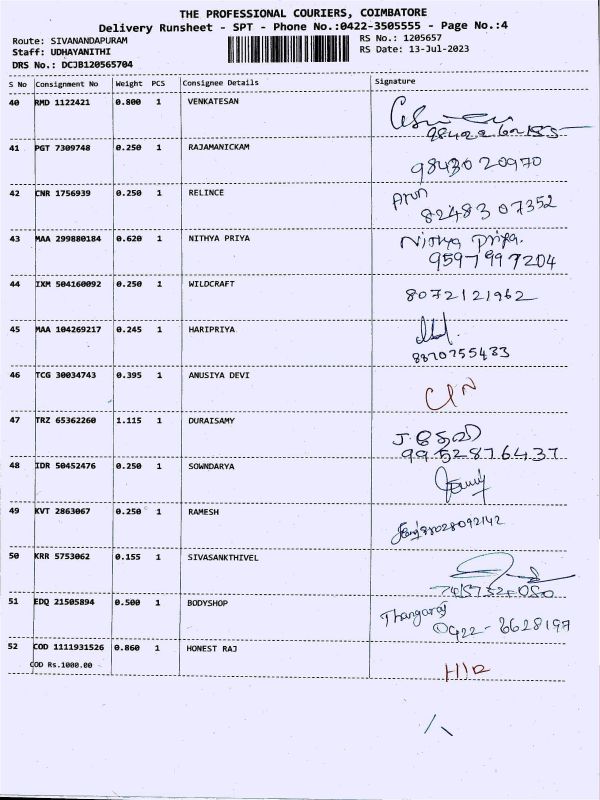 THE PROFESSIONAL COURIERS, COIMBATORE
Delivery Runsheet - SPT - Phone No.:0422-3505555 - Page No.:4
Route: SIVANANDAPURAM RS No.: 1205657
Staff: UDHAYANITHI RS Date: 13-Jul-2023
DRS No.: DCJB120565704
S No Consignment No Weight PCS Consignee Details Signature
40 RMD 1122421 0.800 1 VENKATESAN
41 PGT 7309748 0.250 1 RAJAMANICKAM
9843020970
42 CNR 1756939 0.250 1 RELINCE Arun
82483 07352
43 MAA 299880184 0.620 1 NITHYA PRIYA Nithya Priya.
9597997204
44 IXM 504160092 0.250 1 WILDCRAFT
8072121962
45 MAA 104269217 0.245 1 HARIPRIYA
8870755433
46 TCG 30034743 0.395 1 ANUSIYA DEVI
47 TRZ 65362260 1.115 1 DURAISAMY
9952876437
48 IDR 50452476 0.250 1 SOWNDARYA
49 KVT 2863067 0.250 1 RAMESH
50 KRR 5753062 0.155 1 SIVASANKTHIVEL
51 EDQ 21505894 0.500 1 BODYSHOP Thangaraj
0422-6628197
52 COD 1111931526 0.860 1 HONEST RAJ
COD Rs.1000.00